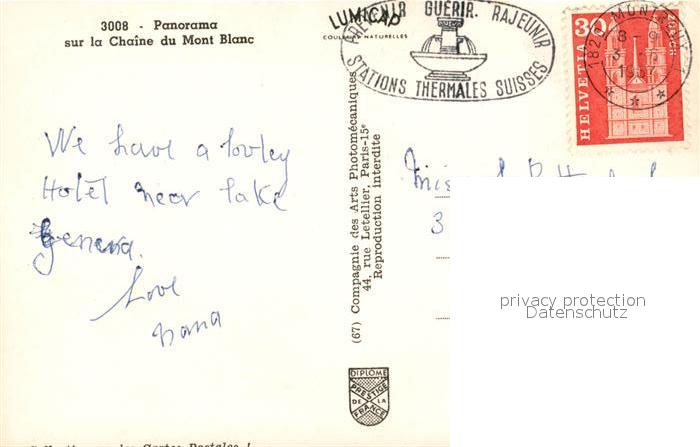 3008 - Panorama
sur la Chaîne du Mont Blanc
LUMICAP
COULEURS NATURELLES
GUÉRIR. RAJEUNIR
STATIONS THERMALES SUISSES
1820 MONTREUX
HELVETIA 30
We have a lovley
Hotel near lake
geneva.
Love
nana
(67) Compagnie des Arts Photomécaniques
44, rue Letellier, Paris-15e
Reproduction interdite
Miss
3
privacy protection
Datenschutz
DIPLOME
PRESTIGE
DE LA
FRANCE